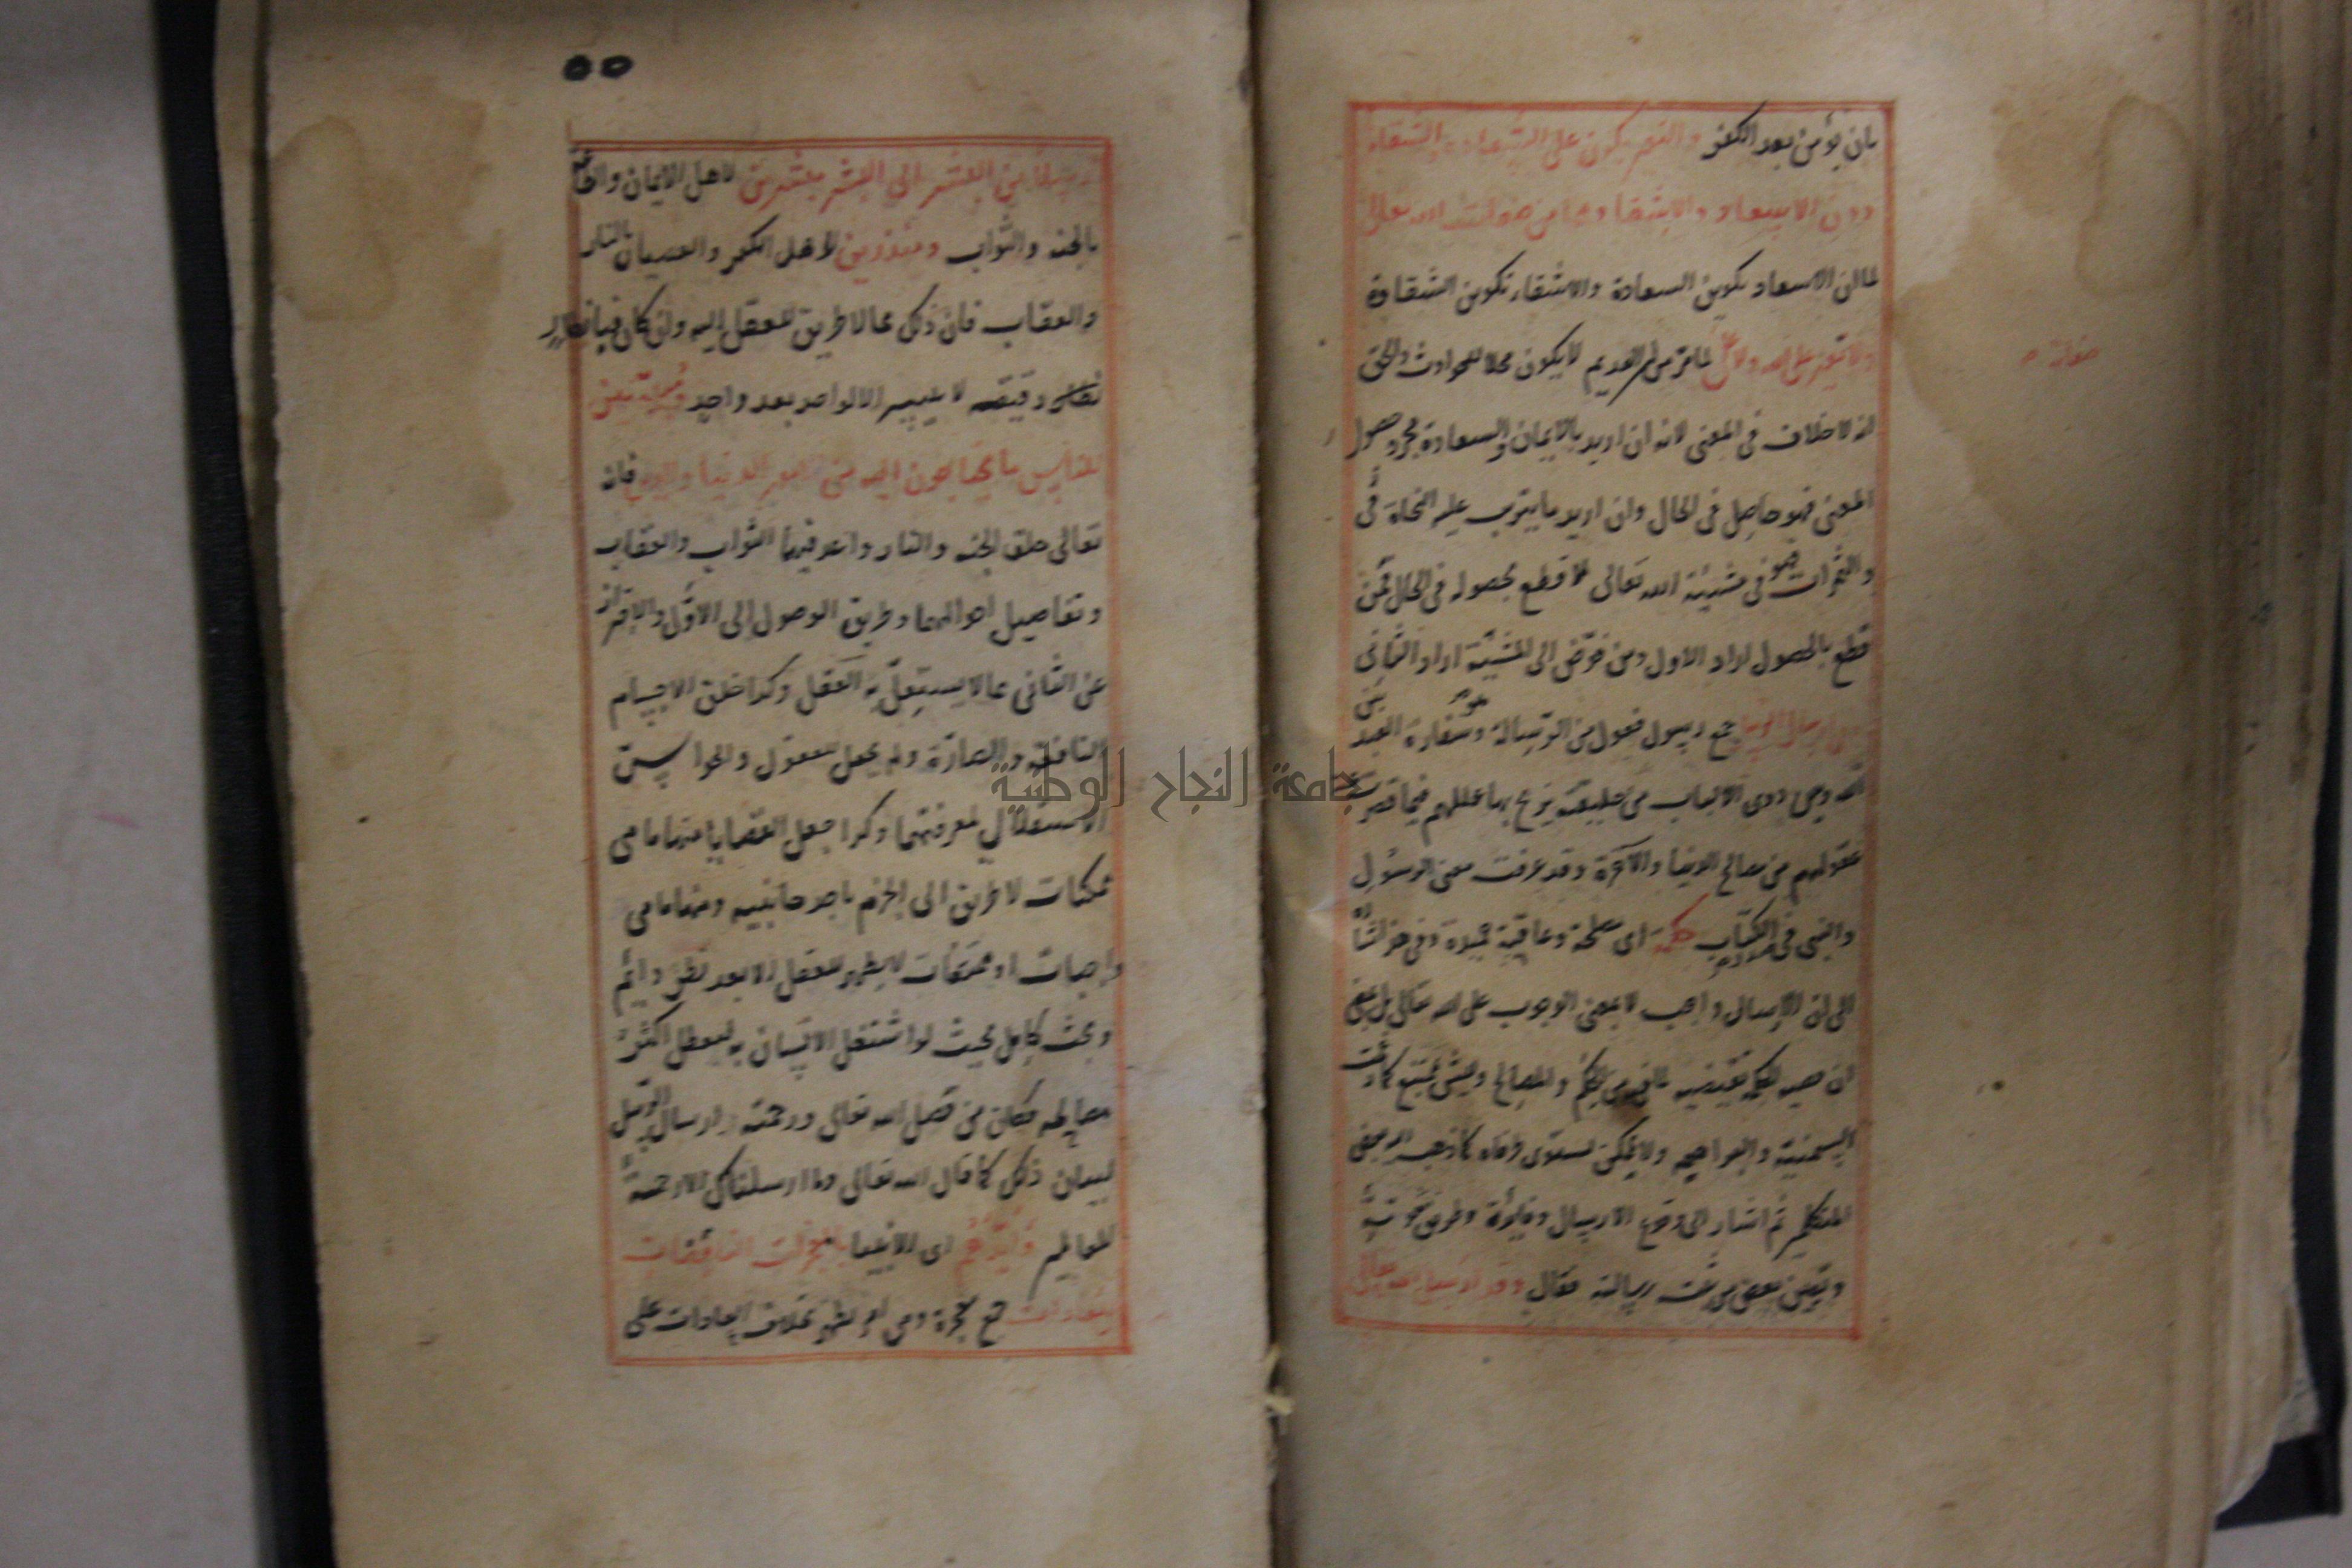 بان يؤمن بعد الكفر والتغير يكون على السعادة والشقاوة
دون الاسعاد والاشقاء وهما من صفات الله تعالى
لما ان الاسعاد تكوين السعادة والاشقاء تكوين الشقاوة
ولا تغير على الله ولا على لما مر من ان القديم لا يكون محلا للحوادث والحق
صفاته
انه لا خلاف في المعنى لانه ان اريد بالايمان والسعادة مجرد حصول
المعنى فهو حاصل في الحال وان اريد ما يترتب عليه النجاة
والثمرات فهو في مشيئة الله تعالى لا قطع بحصوله في الحال فمن
قطع بالحصول اراد الاول ومن فوض الى المشيئة اراد الثاني
وفي ارسال الرسل جمع رسول فعول من الرسالة وهو سفارة العبد بين
الله وبين ذوي الالباب من خليقته يزيح بها عللهم فيما قصرت عنه
عقولهم من مصالح الدنيا والآخرة وقد عرفت معنى الرسول
والنبي في صدر الكتاب حكمة اى مصلحة وعاقبة حميدة وفي هذا اشارة
الى ان الارسال واجب لا بمعنى الوجوب على الله تعالى بل بمعنى
ان قضية الحكمة تقتضيه لما فيه من الحكم والمصالح وليس بممتنع كما زعمت
السمنية والبراهمة ولا بممكن يستوى طرفاه كما ذهب اليه بعض
المتكلمين ثم اشار الى وقوع الارسال وفائدته وطريق ثبوته
وتعيين بعض من ثبتت رسالته فقال وقد ارسل الله تعالى
٥٥
رسلا من البشر الى البشر مبشرين لاهل الايمان والطاعة
بالجنة والثواب ومنذرين لاهل الكفر والعصيان بالنار
والعقاب فان ذلك مما لا طريق للعقل اليه وان كان فبانظار
دقيقة لا يتيسر الا لواحد بعد واحد ومبينين
للناس ما يحتاجون اليه من امور الدنيا والدين فانه
تعالى خلق الجنة والنار واعد فيهما الثواب والعقاب
وتفاصيل احوالهما وطريق الوصول الى الاول والاحتراز
عن الثاني مما لا يستقل به العقل وكذا خلق الاجسام
النافعة والضارة ولم يجعل للعقول والحواس
الاستقلال بمعرفتهما وكذا جعل القضايا منها ما هي
ممكنات لا طريق الى الجزم باحد جانبيه ومنها ما هي
واجبات او ممتنعات لا يظهر للعقل الا بعد نظر دائم
وبحث كامل بحيث لو اشتغل الانسان به لتعطل اكثر
مصالحه فكان من فضل الله تعالى ورحمته ارسال الرسل
لبيان ذلك كما قال الله تعالى وما ارسلناك الا رحمة
للعالمين وايدهم اى الانبيا بالمعجزات الناقضات
للعادات جمع معجزة وهي امر يظهر بخلاف العادات على
جامعة النجاح الوطنية